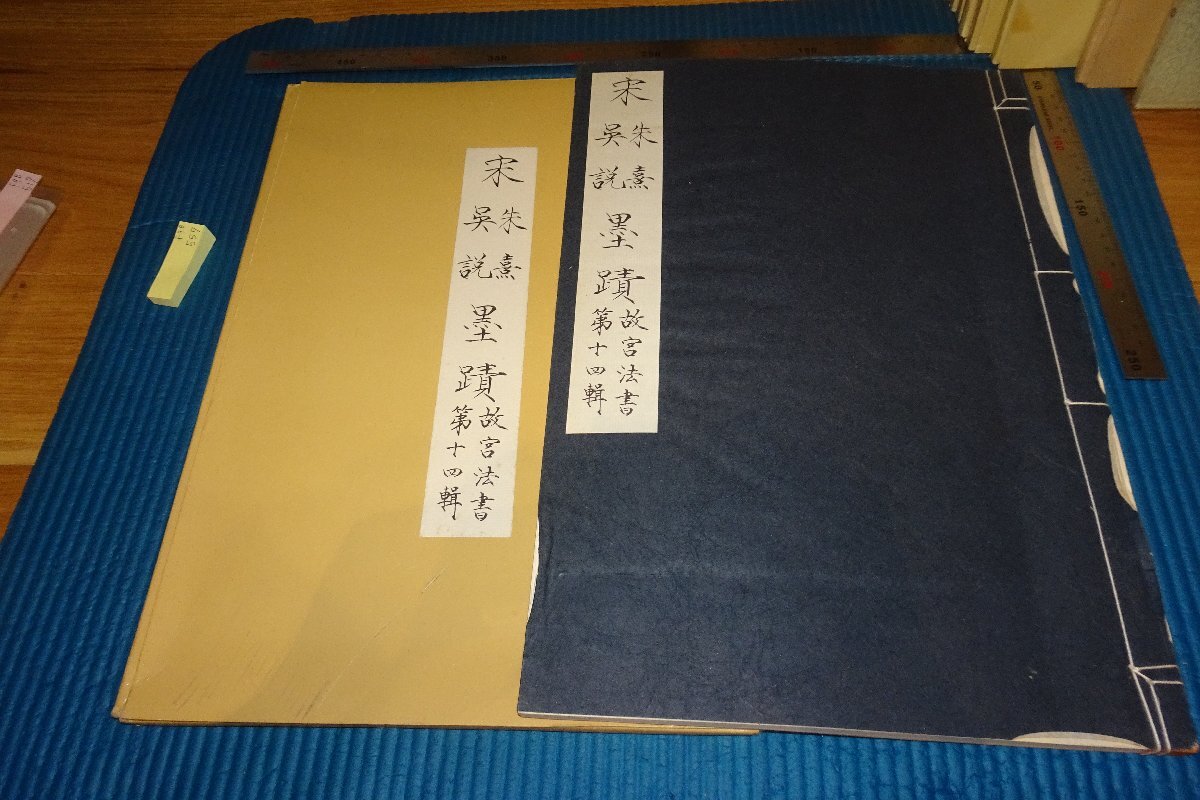 宋朱熹吳説墨蹟
故宮法書
第十四輯
宋朱熹吳説墨蹟
故宮法書
第十四輯
150
250